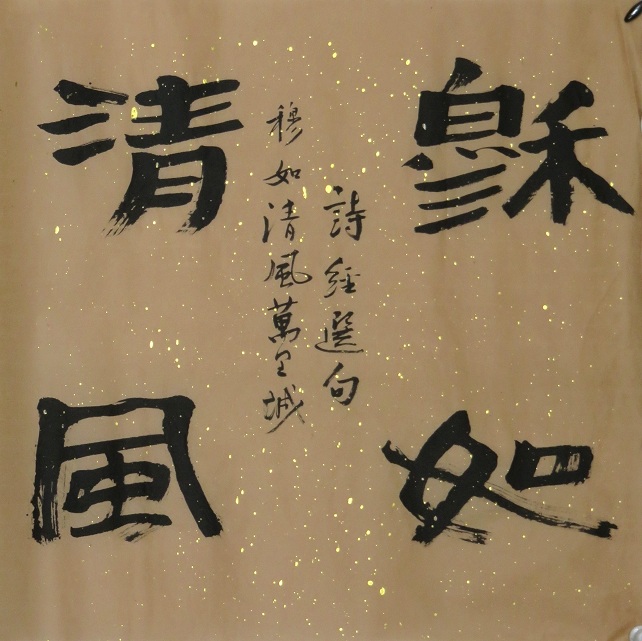 穆如
詩經選句
穆如清風萬
清風